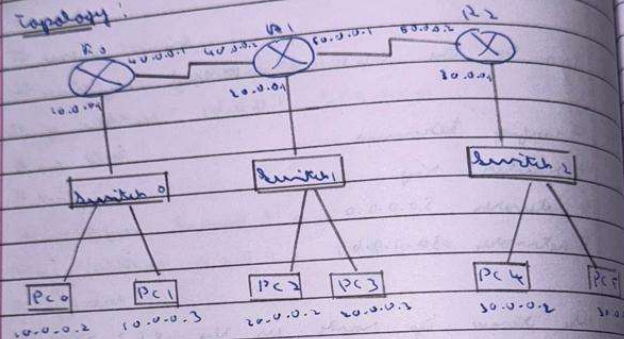 Topology:
R0 40.0.0.1 40.0.0.2 R1 50.0.0.1 50.0.0.2 R2
10.0.0.1 20.0.0.1 30.0.0.1
Switch 0 Switch 1 Switch 2
PC0 PC1 PC2 PC3 PC4
10.0.0.2 10.0.0.3 20.0.0.2 20.0.0.3 30.0.0.2